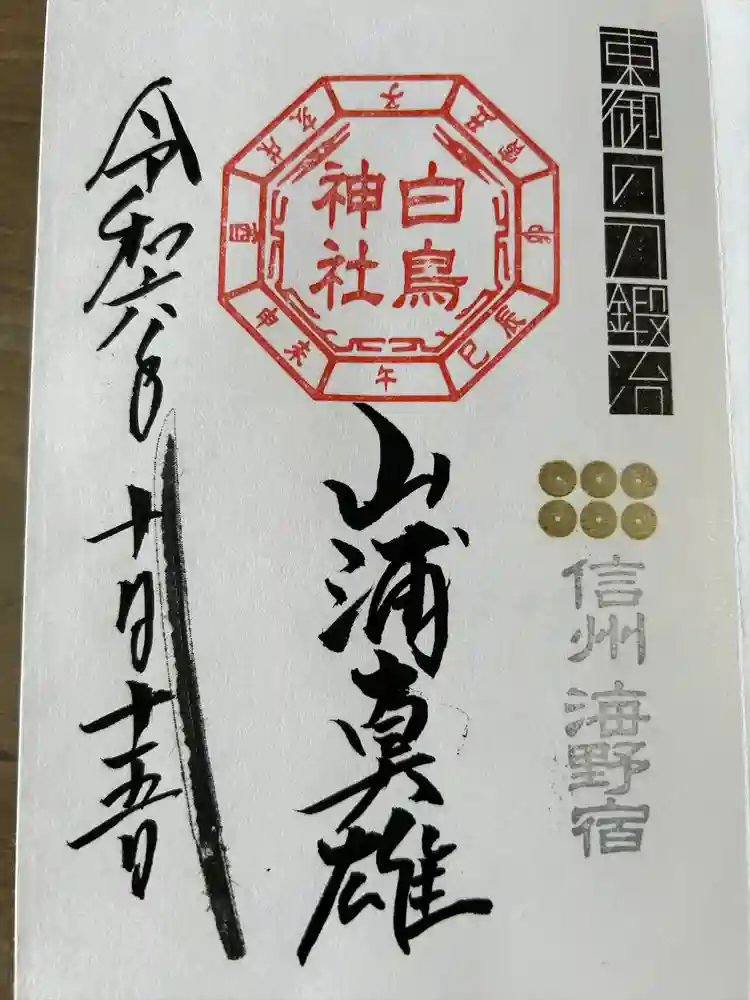 東御の刀鍛冶
信州 海野宿
白鳥
神社
子
丑
寅
卯
辰
巳
午
未
申
酉
戌
亥
山浦真雄
令和六年
十月十五日